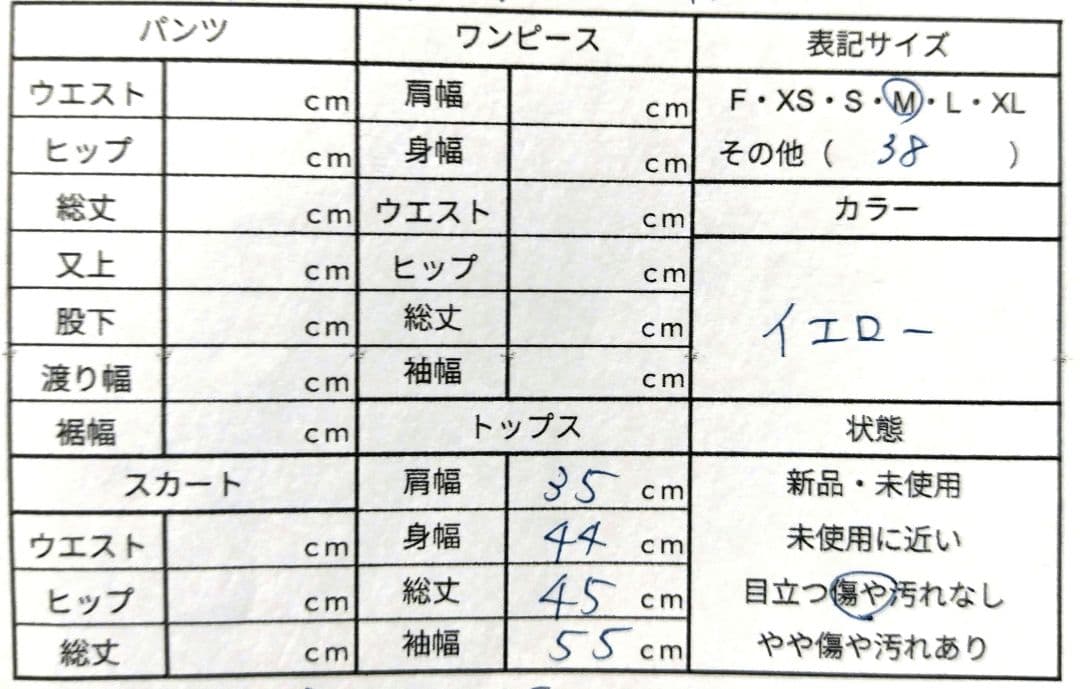 パンツ ワンピース 表記サイズ
ウエスト cm 肩幅 cm F・XS・S・M・L・XL
ヒップ cm 身幅 cm その他（ 38 ）
総丈 cm ウエスト cm カラー
又上 cm ヒップ cm
股下 cm 総丈 cm イエロー
渡り幅 cm 袖幅 cm
裾幅 cm トップス 状態
スカート 肩幅 35 cm 新品・未使用
ウエスト cm 身幅 44 cm 未使用に近い
ヒップ cm 総丈 45 cm 目立つ傷や汚れなし
総丈 cm 袖幅 55 cm やや傷や汚れあり